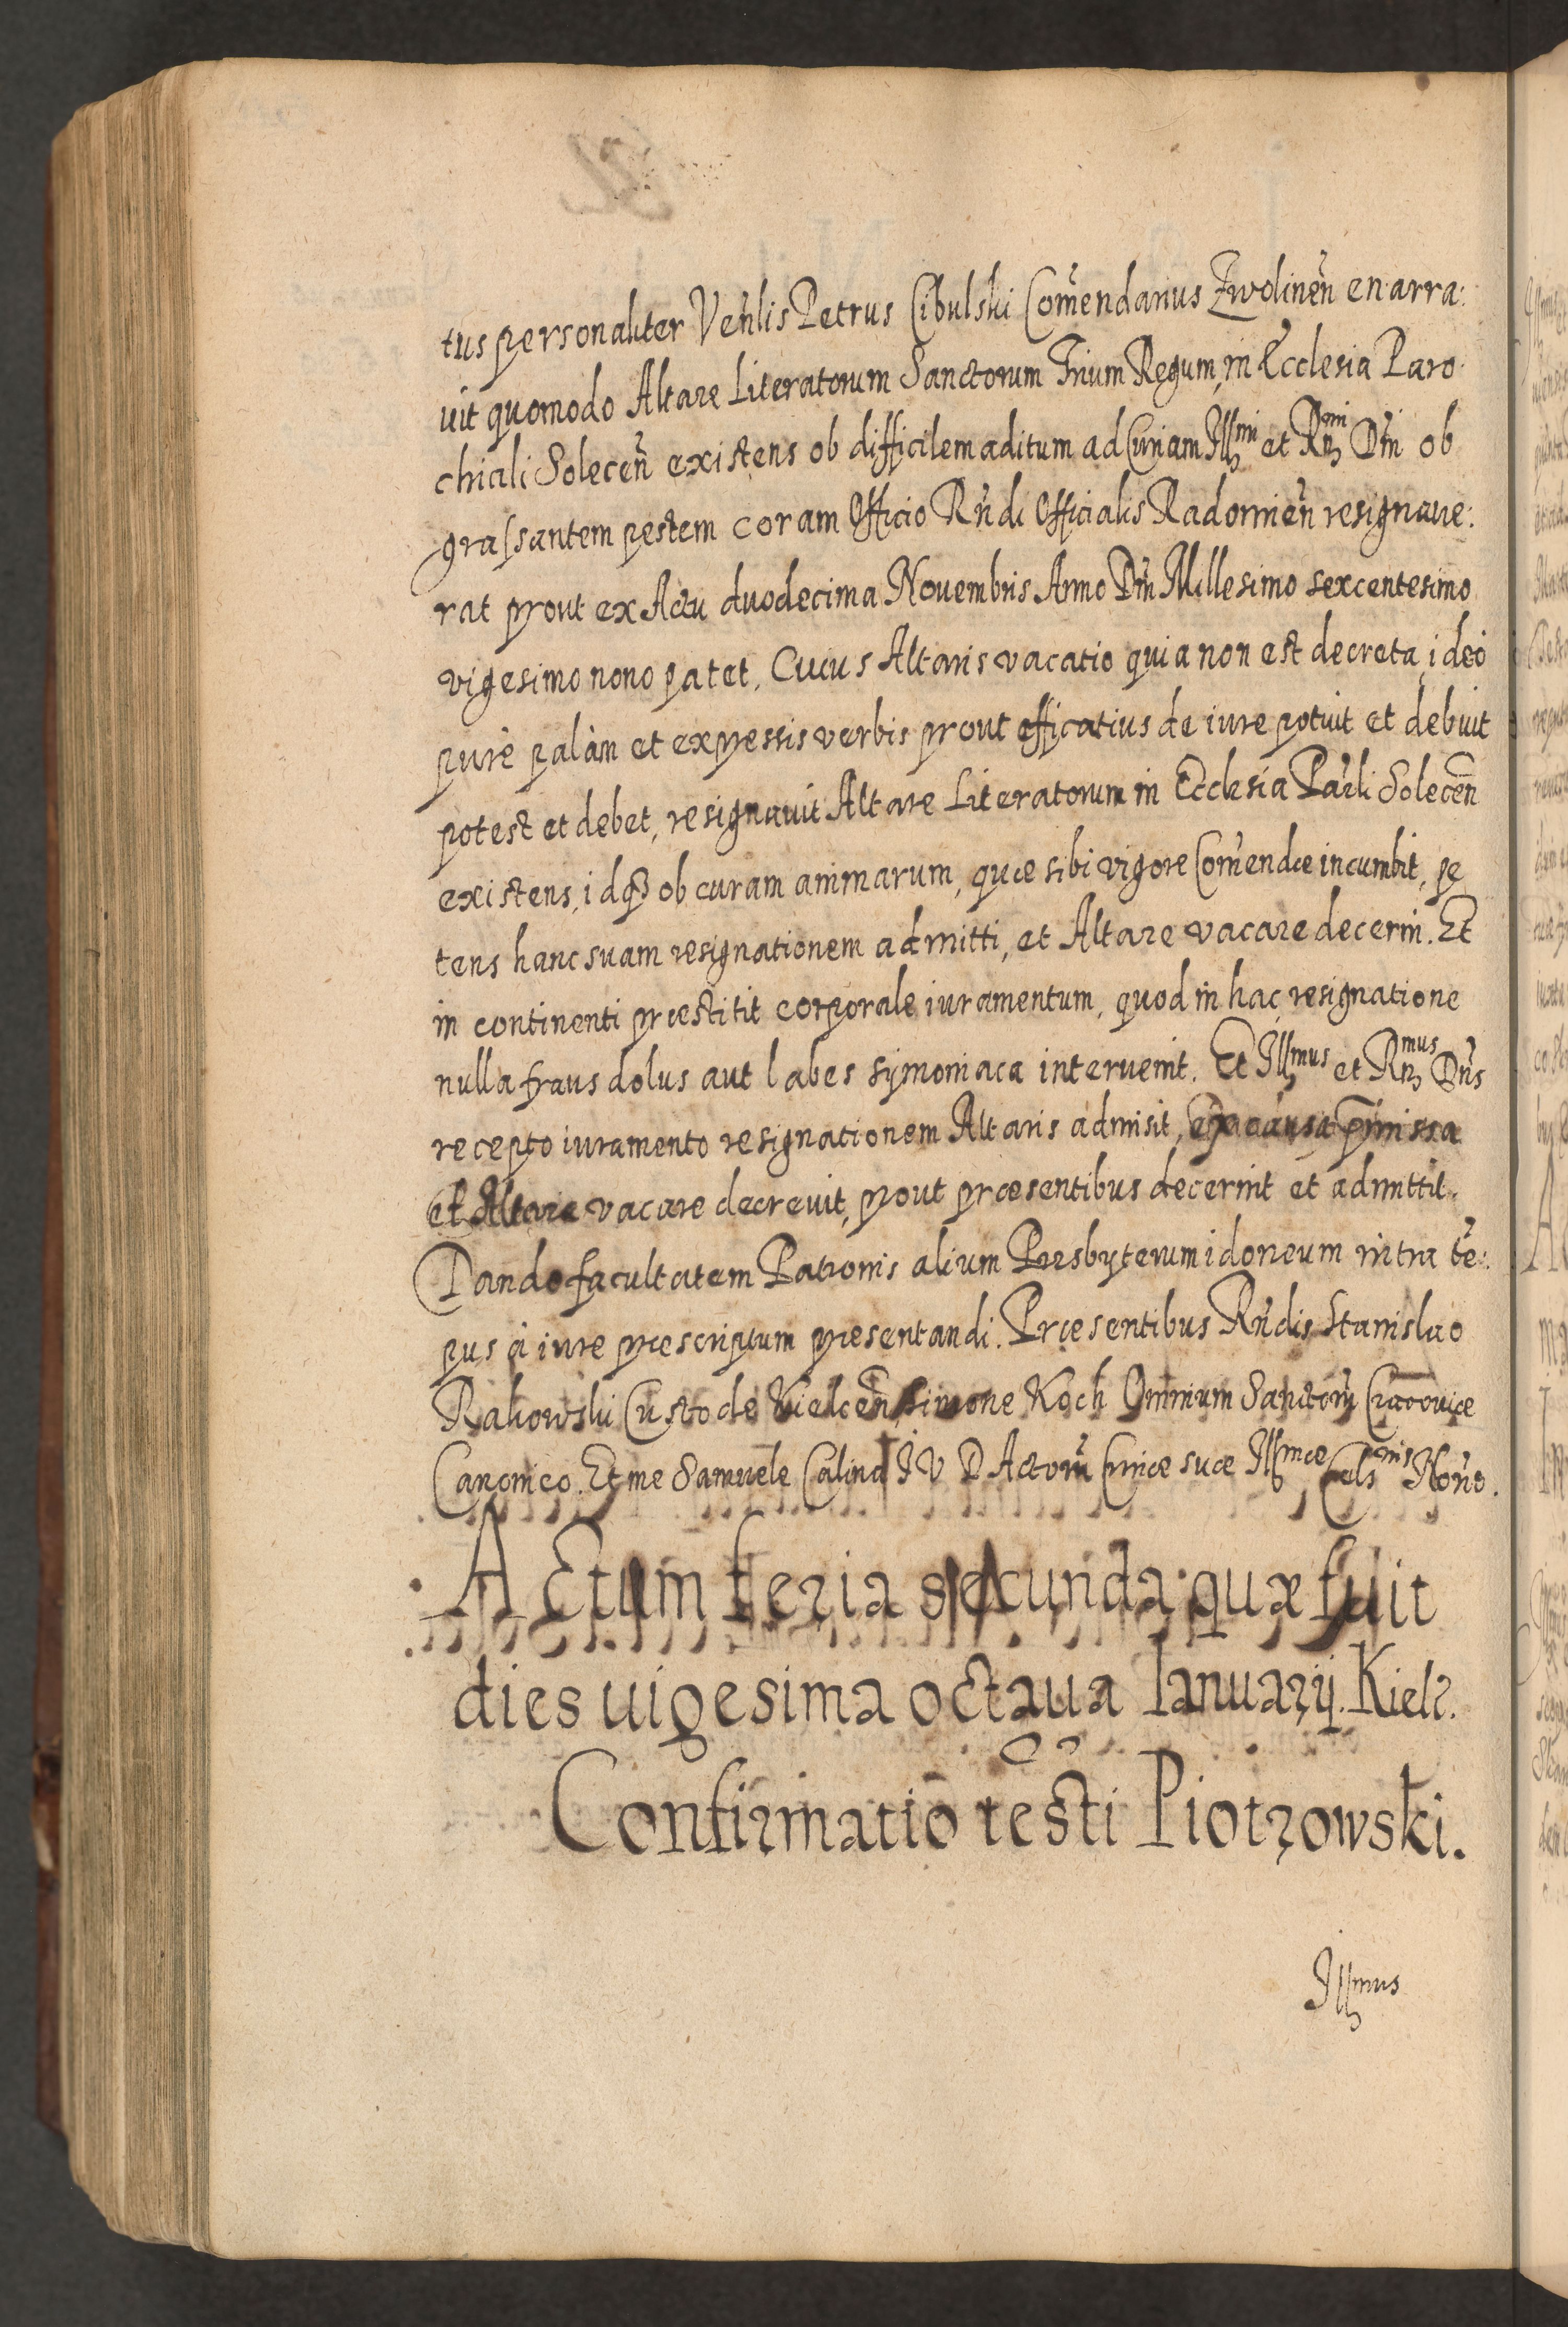 tus personaliter Venlis Petrus Cibulski Comendarius Zwolinen enarra:
uit quomodo Altare Literatorum Sanctorum Trium Regum, in Ecclesia Paro
chiali Solecen existens ob difficilem aditum ad Curiam Illmi et Rmi Dni ob
grassantem pestem coram Officio Rndi Officialis Radomien resignaue:
rat prout ex Actu duodecima Nouembris Anno Dni Millesimo sexcentesimo
vigesimo nono patet. Cuius Altaris vacatio quia non est decreta, ideo
purè palàm et expressis verbis prout efficatius de iure potuit et debuit
potest et debet, resignauit Altare Literatorum in Ecclesia Parli Solecen
existens, idq3 ob curam animarum, quae sibi vigore Comendae incumbit, pe
tens hanc suam resignationem admitti, et Altare vacare decerni. Et
in continenti praestitit corporale iuramentum, quod in hac resignatione
nulla fraus dolus aut labes symoniaca interuenit. Et Illmus et Rmus Dns
recepto iuramento resignationem Altaris admisit, ex causa pmissa
et Altare vacare decrevit, prout praesentibus decernit et admittit.
Dando facultatem Patronis alium Presbyterum idoneum intra te:
pus à iure praescriptum praesentandi. Praesentibus Rndis Stanislao
Rakowski Custode Kielcen, Simone Koch Omnium Sanctorum Cracouiae
Canonico. Et me Samuele Calina I V D Actorum Curiae suae Illmae Celsnis Notro.
A Ctum feria secunda quae fuit
dies uigesima octaua Ianuarij. Kielc.
Confirmatio testi Piotrowski.
Illmus